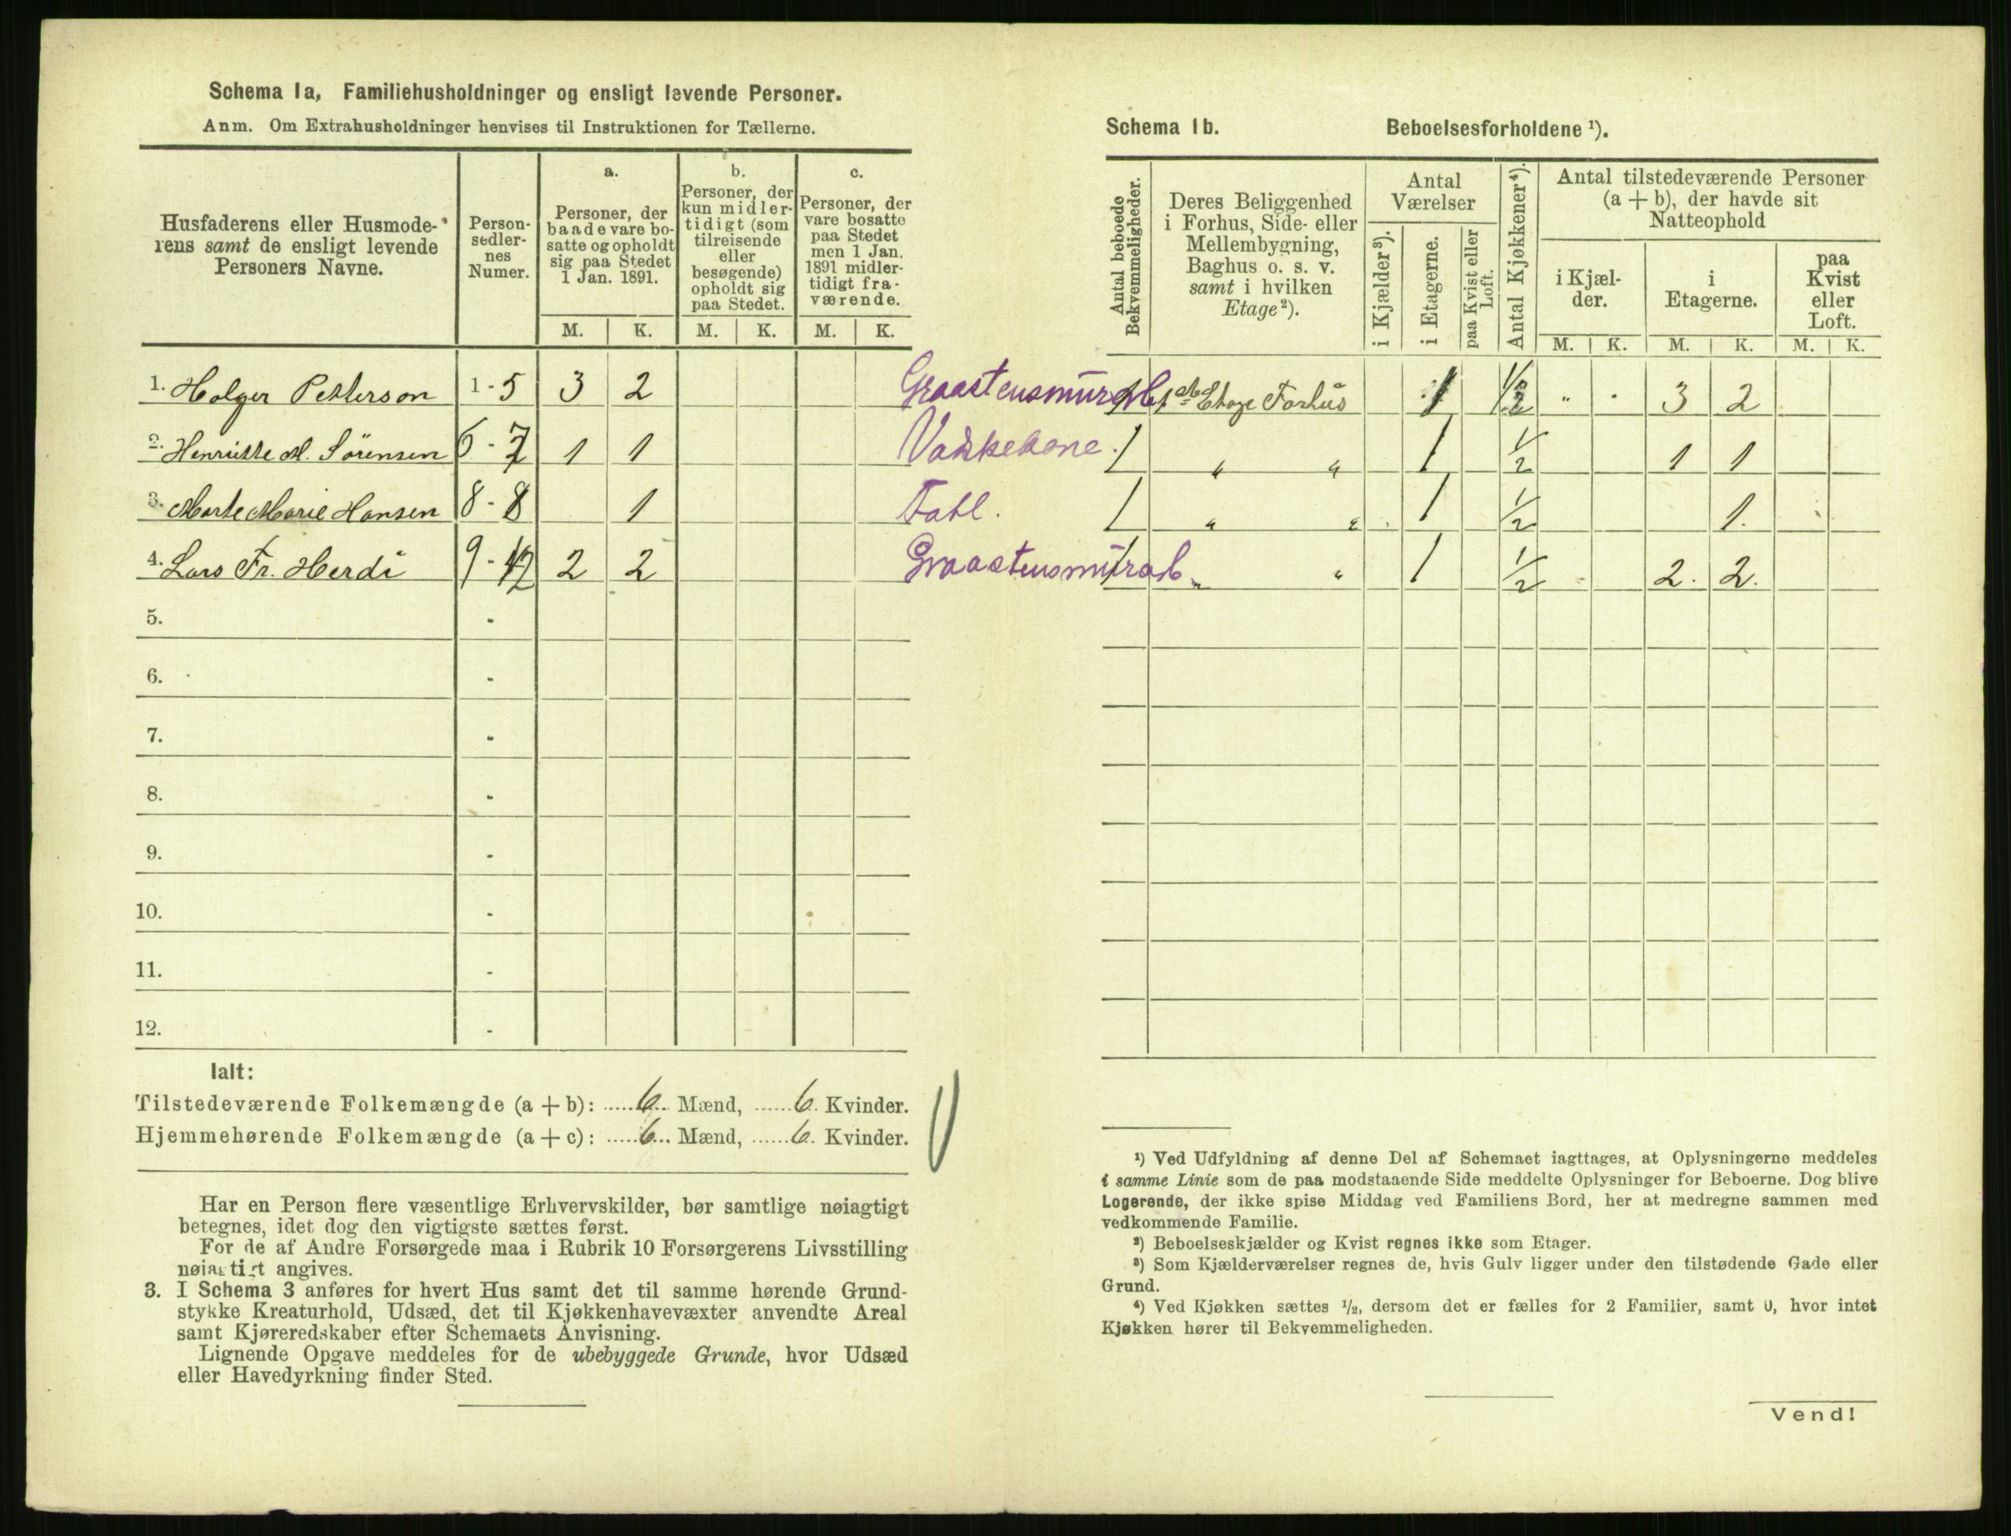 Schema 1a, Familiehusholdninger og ensligt levende Personer.
Anm. Om Extrahusholdninger henvises til Instruktionen for Tællerne.
Husfaderens eller Husmode-
rens samt de ensligt levende
Personers Navne.
Person-
sedler-
nes
Numer.
a.
Personer, der
baade vare bo-
satte og opholdt
sig paa Stedet
1 Jan. 1891.
b.
Personer, der
kun midler-
tidigt (som
tilreisende
eller
besøgende)
opholdt sig
paa Stedet.
c.
Personer, der
vare bosatte
paa Stedet
men 1 Jan.
1891 midler-
tidigt fra-
værende.
M. K. M. K. M. K.
1. Holger Petterson 1 - 5 3 2 Graastensmurarb
2. Henriette M. Sørensen 6 - 7 1 1 Vaskekone.
3. Marte Marie Hansen 8 - 8 1 Fatl.
4. Lars Fr. Herdi 9 - 12 2 2 Graastensmurarb
5. -
6. -
7. -
8. -
9. -
10. -
11. -
12. -
Ialt:
Tilstedeværende Folkemængde (a + b): 6 Mænd, 6 Kvinder.
Hjemmehørende Folkemængde (a + c): 6 Mænd, 6 Kvinder.
Har en Person flere væsentlige Erhvervskilder, bør samtlige nøiagtigt
betegnes, idet dog den vigtigste sættes først.
For de af Andre Forsørgede maa i Rubrik 10 Forsørgerens Livsstilling
nøiagtigt angives.
3. I Schema 3 anføres for hvert Hus samt det til samme hørende Grund-
stykke Kreaturhold, Udsæd, det til Kjøkkenhavevæxter anvendte Areal
samt Kjøreredskaber efter Schemaets Anvisning.
Lignende Opgave meddeles for de ubebyggede Grunde, hvor Udsæd
eller Havedyrkning finder Sted.
Schema 1b. Beboelsesforholdene ¹).
Antal beboede
Bekvemmeligheder.
Deres Beliggenhed
i Forhus, Side- eller
Mellembygning,
Baghus o. s. v.
samt i hvilken
Etage²).
Antal
Værelser
i Kjælder³).
i Etagerne.
paa Kvist eller
Loft.
Antal Kjøkkener⁴).
Antal tilstedeværende Personer
(a + b), der havde sit
Natteophold
i Kjæl-
der.
i
Etagerne.
paa
Kvist
eller
Loft.
M. K. M. K. M. K.
1 1st Etage Forhus 1 1/2 " " 3 2
1 " " 1 1/2 1 1
1 " " 1 1/2 1.
1 " " 1 1/2 2. 2.
¹) Ved Udfyldning af denne Del af Schemaet iagttages, at Oplysningerne meddeles
i samme Linie som de paa modstaaende Side meddelte Oplysninger for Beboerne. Dog blive
Logerende, der ikke spise Middag ved Familiens Bord, her at medregne sammen med
vedkommende Familie.
²) Beboelseskjælder og Kvist regnes ikke som Etager.
³) Som Kjælderværelser regnes de, hvis Gulv ligger under den tilstødende Gade eller
Grund.
⁴) Ved Kjøkken sættes ½, dersom det er fælles for 2 Familier, samt 0, hvor intet
Kjøkken hører til Bekvemmeligheden.
Vend!